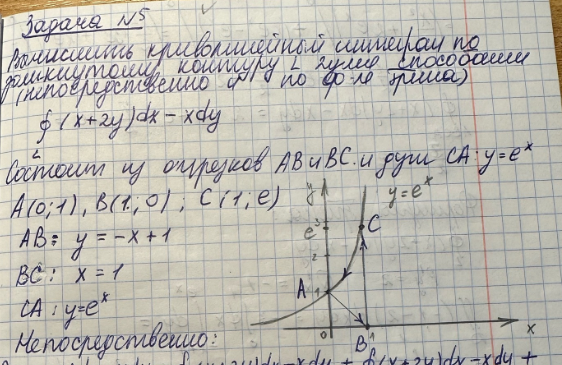 Задача №5
Вычислить криволинейный интеграл по
замкнутому контуру L двумя способами
(непосредственно и по ф-ле Грина)
∮ (x+2y)dx - xdy
L
Состоит из отрезков AB и BC и дуги CA: y=e^x
A(0;1), B(1;0); C(1;e)
AB: y = -x+1
BC: x = 1
CA: y=e^x
Непосредственно:
y
y=e^x
e
C
2
A
1
0
B
1
x
(x+2y)dx - xdy + ∮(x+2y)dx - xdy +